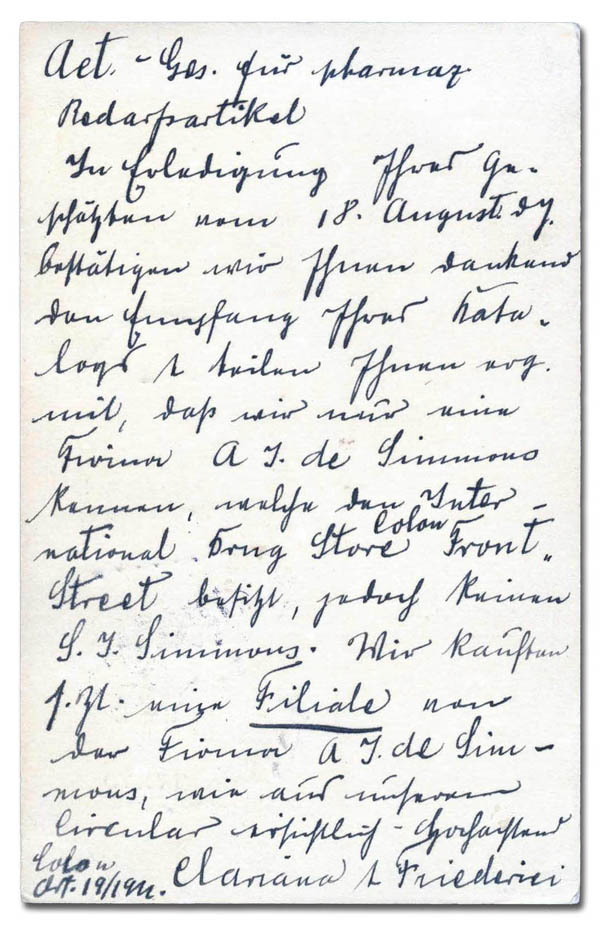 Act.-Ges. für pharmaz.
Bedarfsartikel
In Erledigung Ihres Ge-
schätzten vom 18. August. dJ.
bestätigen wir Ihnen dankend
den Empfang Ihres Kata-
logs & teilen Ihnen erg.
mit, daß wir nur eine
Firma A J. de Simmons
kennen, welche den Inter-
national Drug Store Colon Front-
Street besitzt, jedoch keinen
S. J. Simmons. Wir kauften
s. Zt. eine Filiale von
der Firma A J. de Sim-
mons, wie aus unserem
Circular ersichtlich - Hochachtend
Colon Clariana & Friederici
Oct. 19/1911.